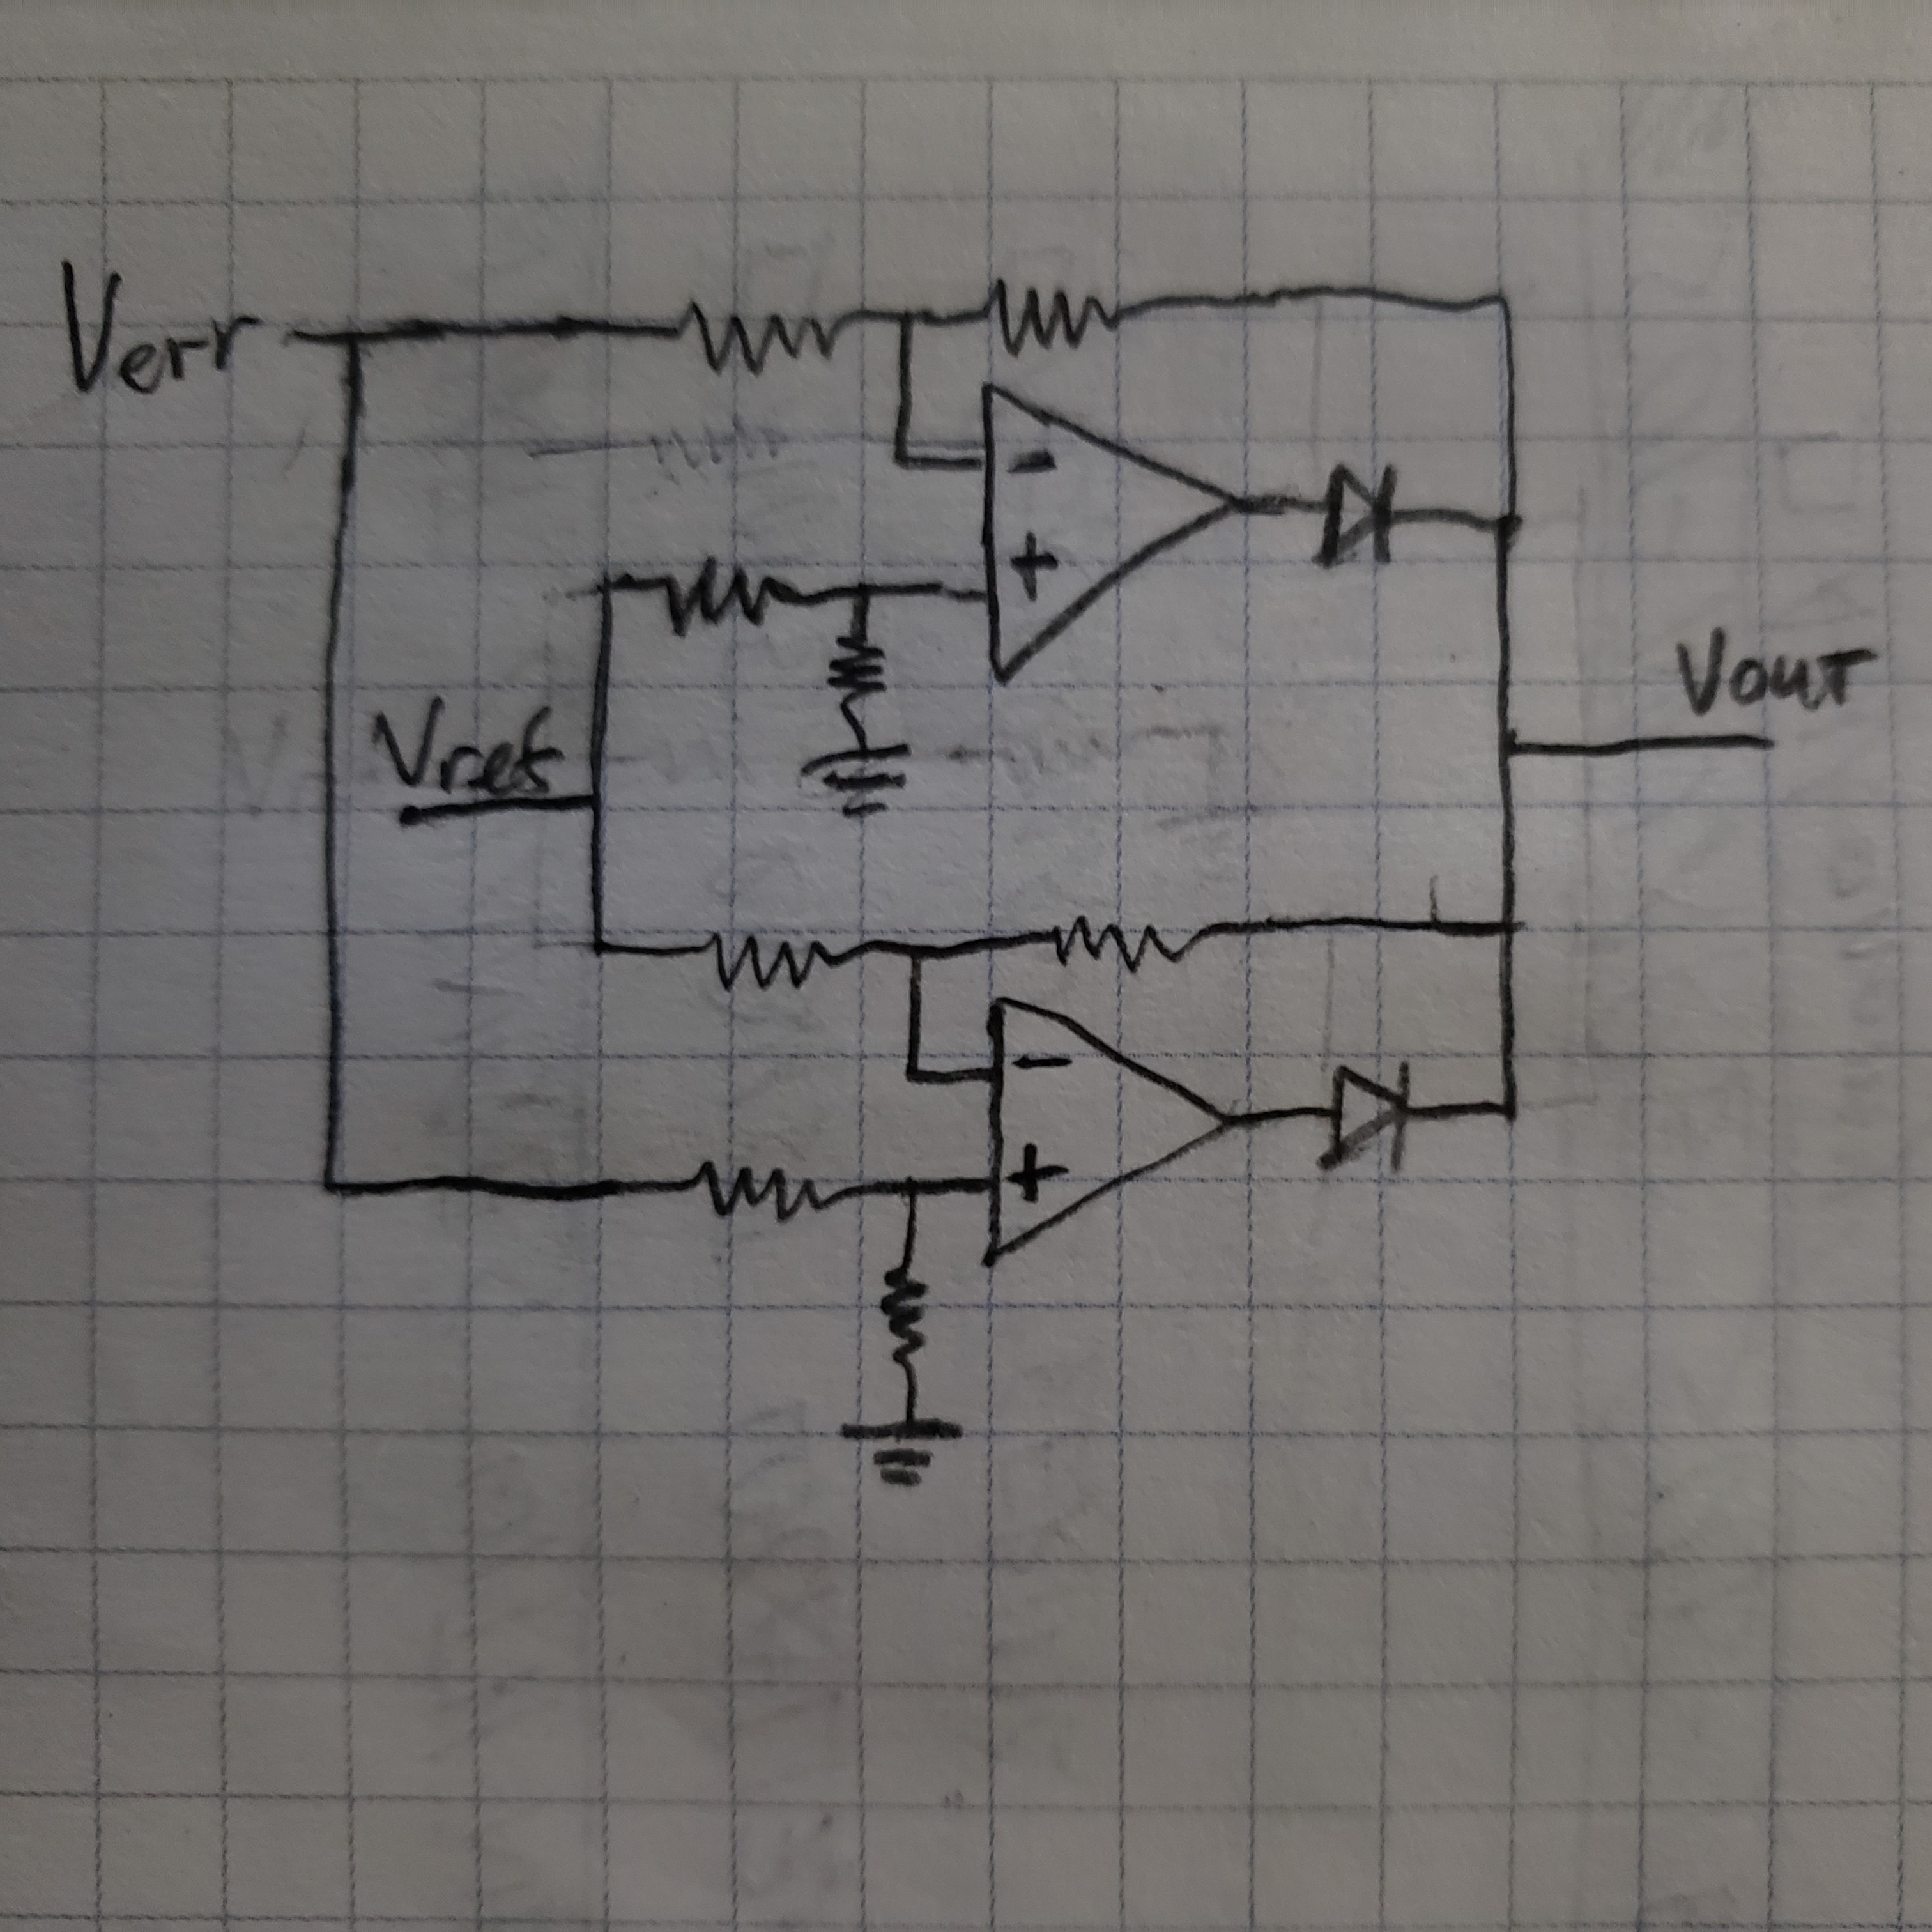 Verr
-
+
Vref
Vout
-
+